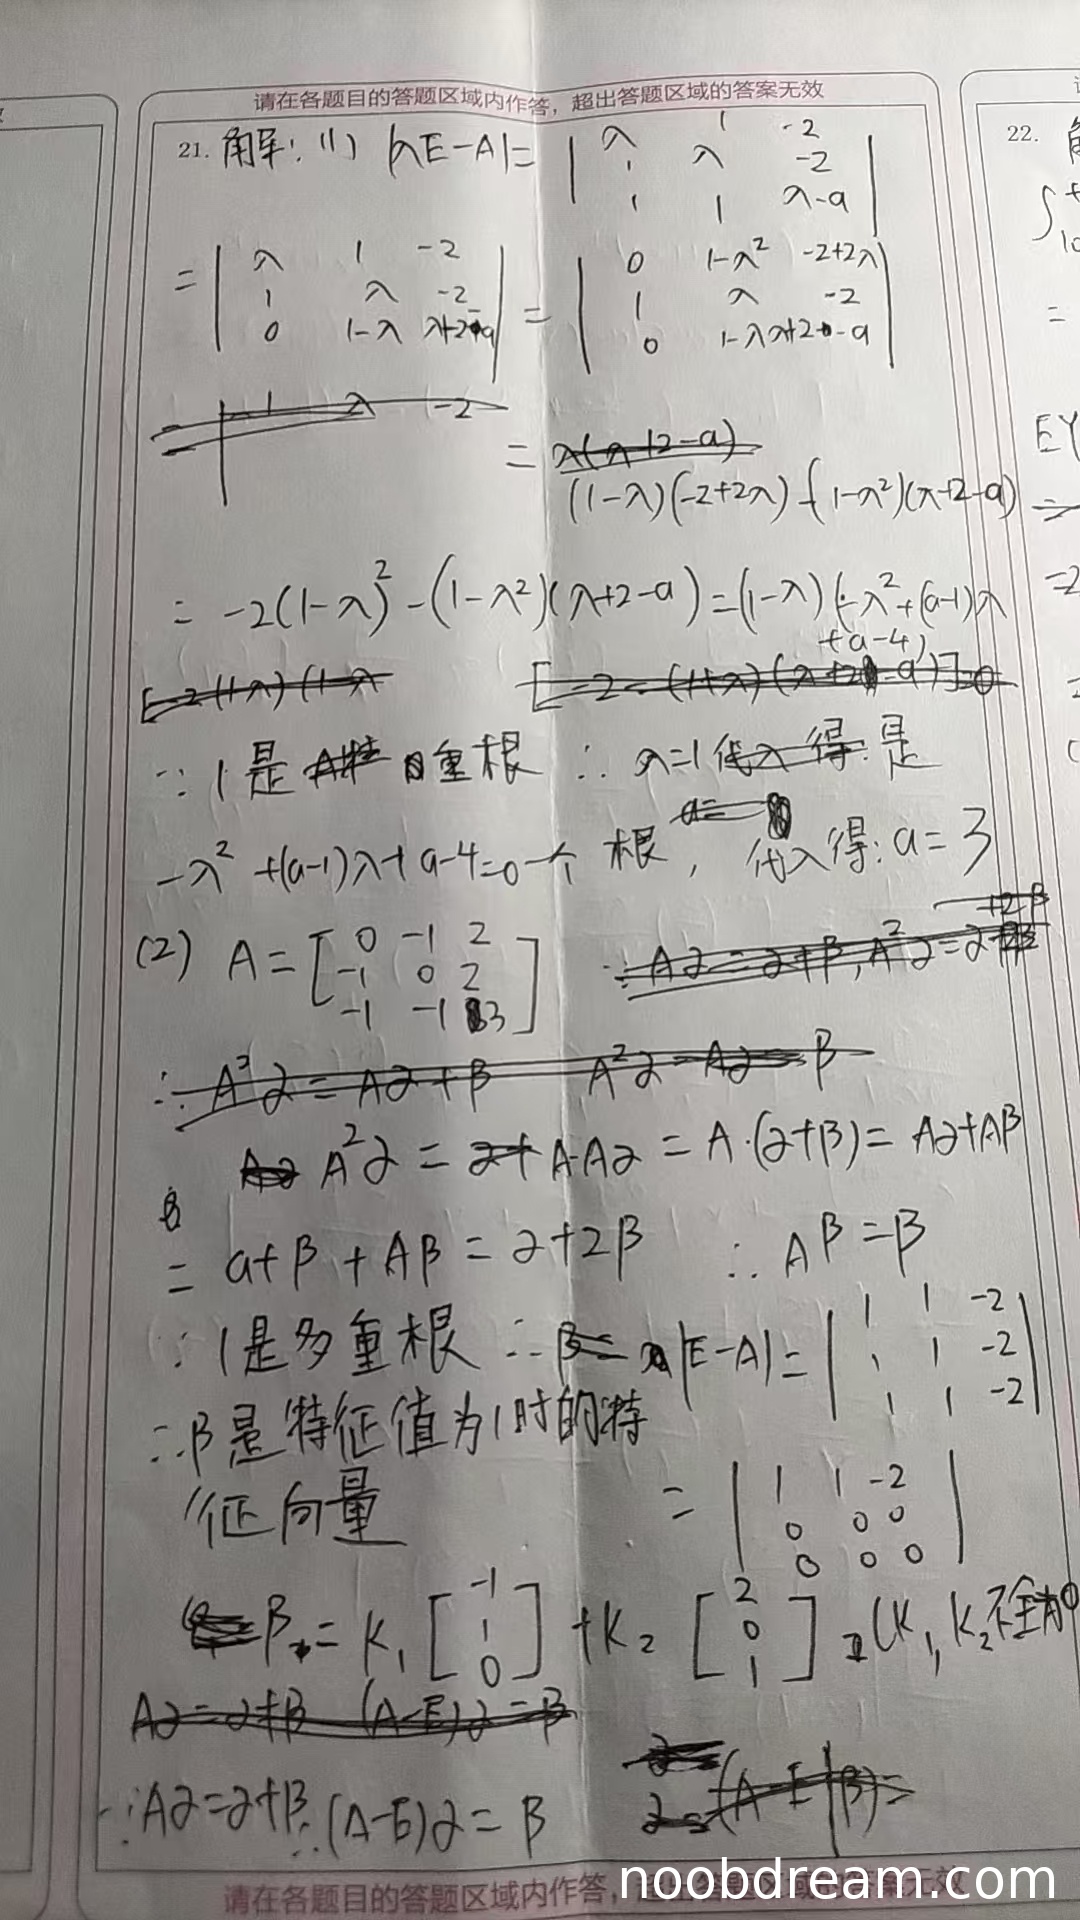 请在各题目的答题区域内作答，超出答题区域的答案无效
21. 解：(1) |λE-A|= | λ 1 -2
1 λ -2
1 1 λ-a |
= | λ 1 -2
1 λ -2
0 1-λ λ+2-a | = | 0 1-λ² -2+2λ
1 λ -2
0 1-λ λ+2-a |
1 λ -2
= λ(λ+2-a)
(1-λ)(-2+2λ)-(1-λ²)(λ+2-a)
= -2(1-λ)²-(1-λ²)(λ+2-a)=(1-λ)(-λ²+(a-1)λ
+a-4)
∵ 1是重根 ∴ λ=1代入得:是
-λ²+(a-1)λ+a-4=0一个根，代入得:a=3
(2) A= [ 0 -1 2
-1 0 2
-1 -1 3 ]
∵ Aα=α+β, A²α=α+2β
∴ A²α=Aα+β A²α-Aα=β
A²α=A·Aα=A·(α+β)=Aα+Aβ
=α+β+Aβ=α+2β ∴Aβ=β
∵ 1是多重根 ∴ |E-A|= | 1 1 -2
1 1 -2
1 1 -2 |
∴β是特征值为1时的特
征向量
= | 1 1 -2
0 0 0
0 0 0 |
β=k₁ [ -1
1
0 ] +k₂ [ 2
0
1 ] (k₁,k₂不全为0
Aα=α+β (A-E)α=β
∵Aα=α+β ∴(A-E)α=β
(A-E|β)=
请在各题目的答题区域内作答，超出答题区域的答案无效
noobdream.com
22.